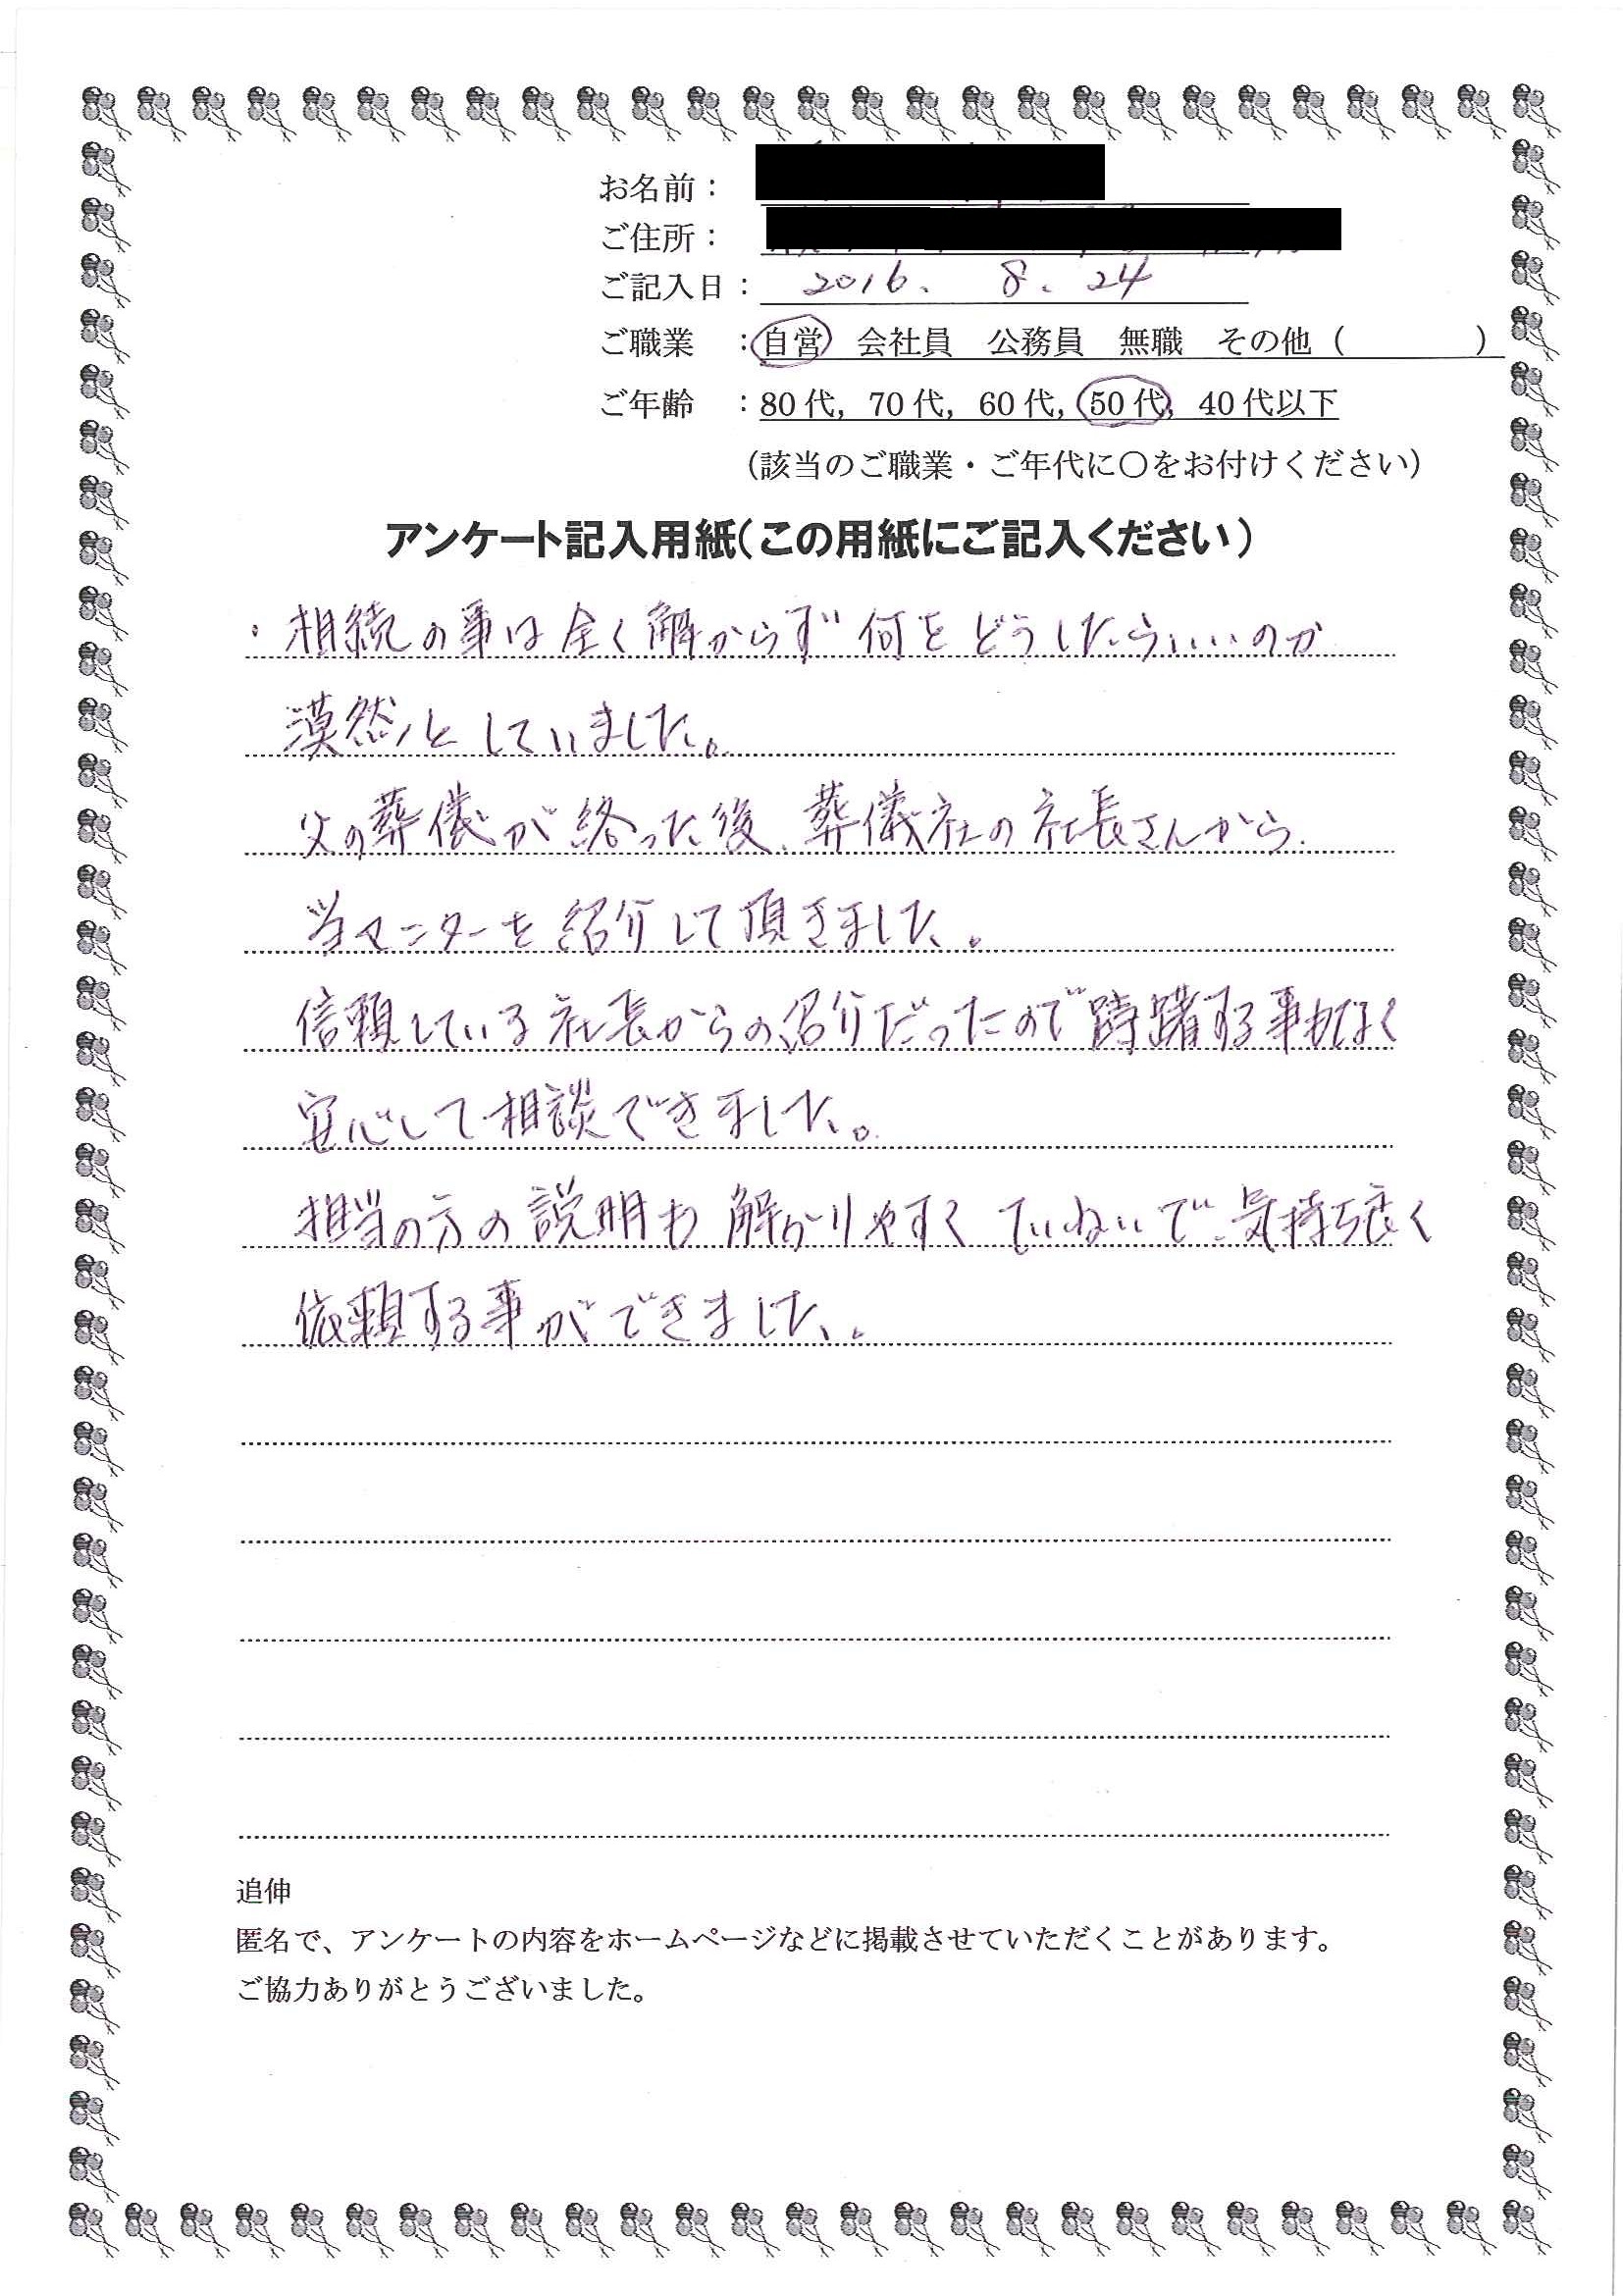 お名前：
ご住所：
ご記入日： 2016. 8. 24
ご職業 ：自営 会社員 公務員 無職 その他（ ）
ご年齢 ：80代，70代，60代，50代，40代以下
（該当のご職業・ご年代に〇をお付けください）
アンケート記入用紙（この用紙にご記入ください）
・相続の事は全く解からず何をどうしたらいいのか
漠然としていました。
父の葬儀が終った後、葬儀社の社長さんから
当センターを紹介して頂きました。
信頼している社長からの紹介だったので躊躇する事もなく
安心して相談できました。
担当の方の説明も解かりやすくていねいで気持ち良く
依頼する事ができました。
追伸
匿名で、アンケートの内容をホームページなどに掲載させていただくことがあります。
ご協力ありがとうございました。